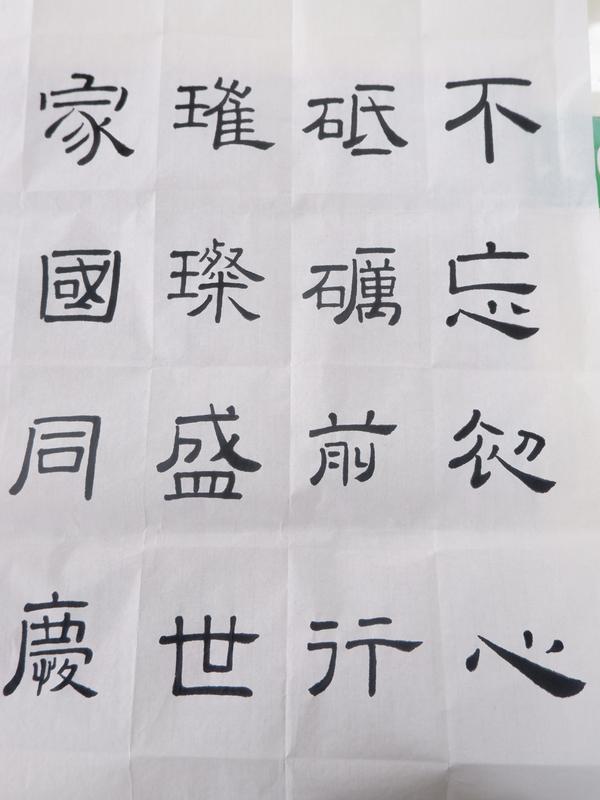 不忘初心
砥礪前行
璀璨盛世
家國同慶